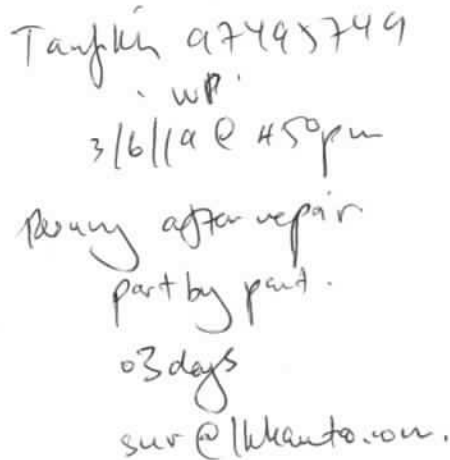 Taufikh 97495749
. WP.
3/6/19 @ 450pm
after repair
part by part.
03 days
sur@lkkauto.com.